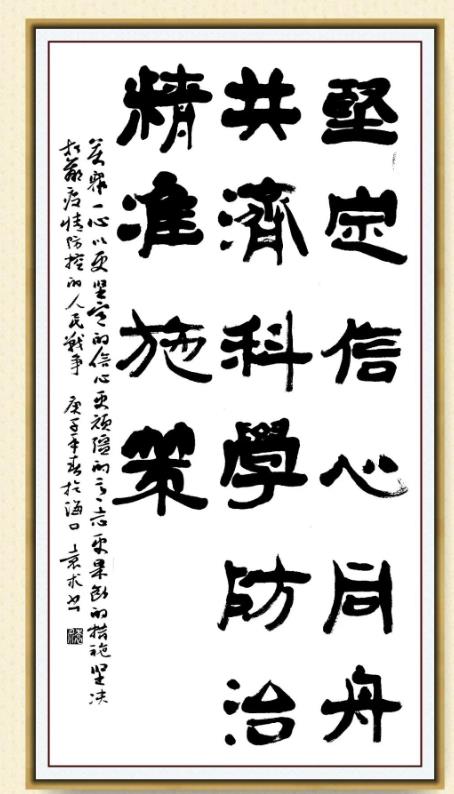 堅定信心同舟
共濟科學防治
精准施策
萬眾一心以更坚定的信心更顽强的意志更果断的措施坚决
打赢疫情防控的人民戰争 庚子年春於海口 袁 书